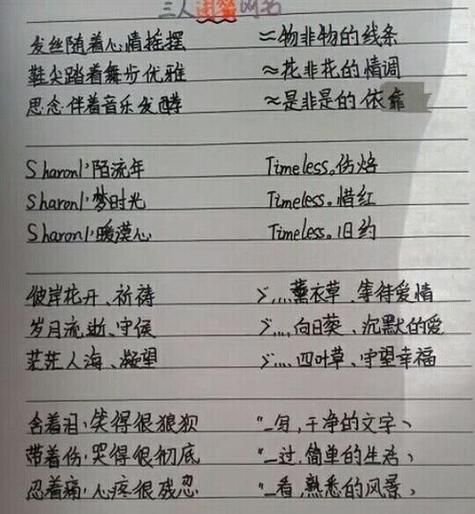 三人闺蜜网名
发丝随着心情摇摆 ≈物非物的线条
鞋尖踏着舞步优雅 ≈花非花的情调
思念伴着音乐发酵 ≈是非是的依靠
Sharonl'陌流年 Timeless。伤烙
Sharonl'梦时光 Timeless。惜红
Sharonl'暖漠心 Timeless。旧约
彼岸花开、祈祷 ゞ....薰衣草、等待爱情
岁月流逝、守候 ゞ....向日葵、沉默的爱
茫茫人海、凝望 ゞ....四叶草、守望幸福
含着泪,笑得很狼狈 “_写,干净的文字、
带着伤,哭得很彻底 “_过,简单的生活、
忍着痛,心疼很残忍 “_看,熟悉的风景、